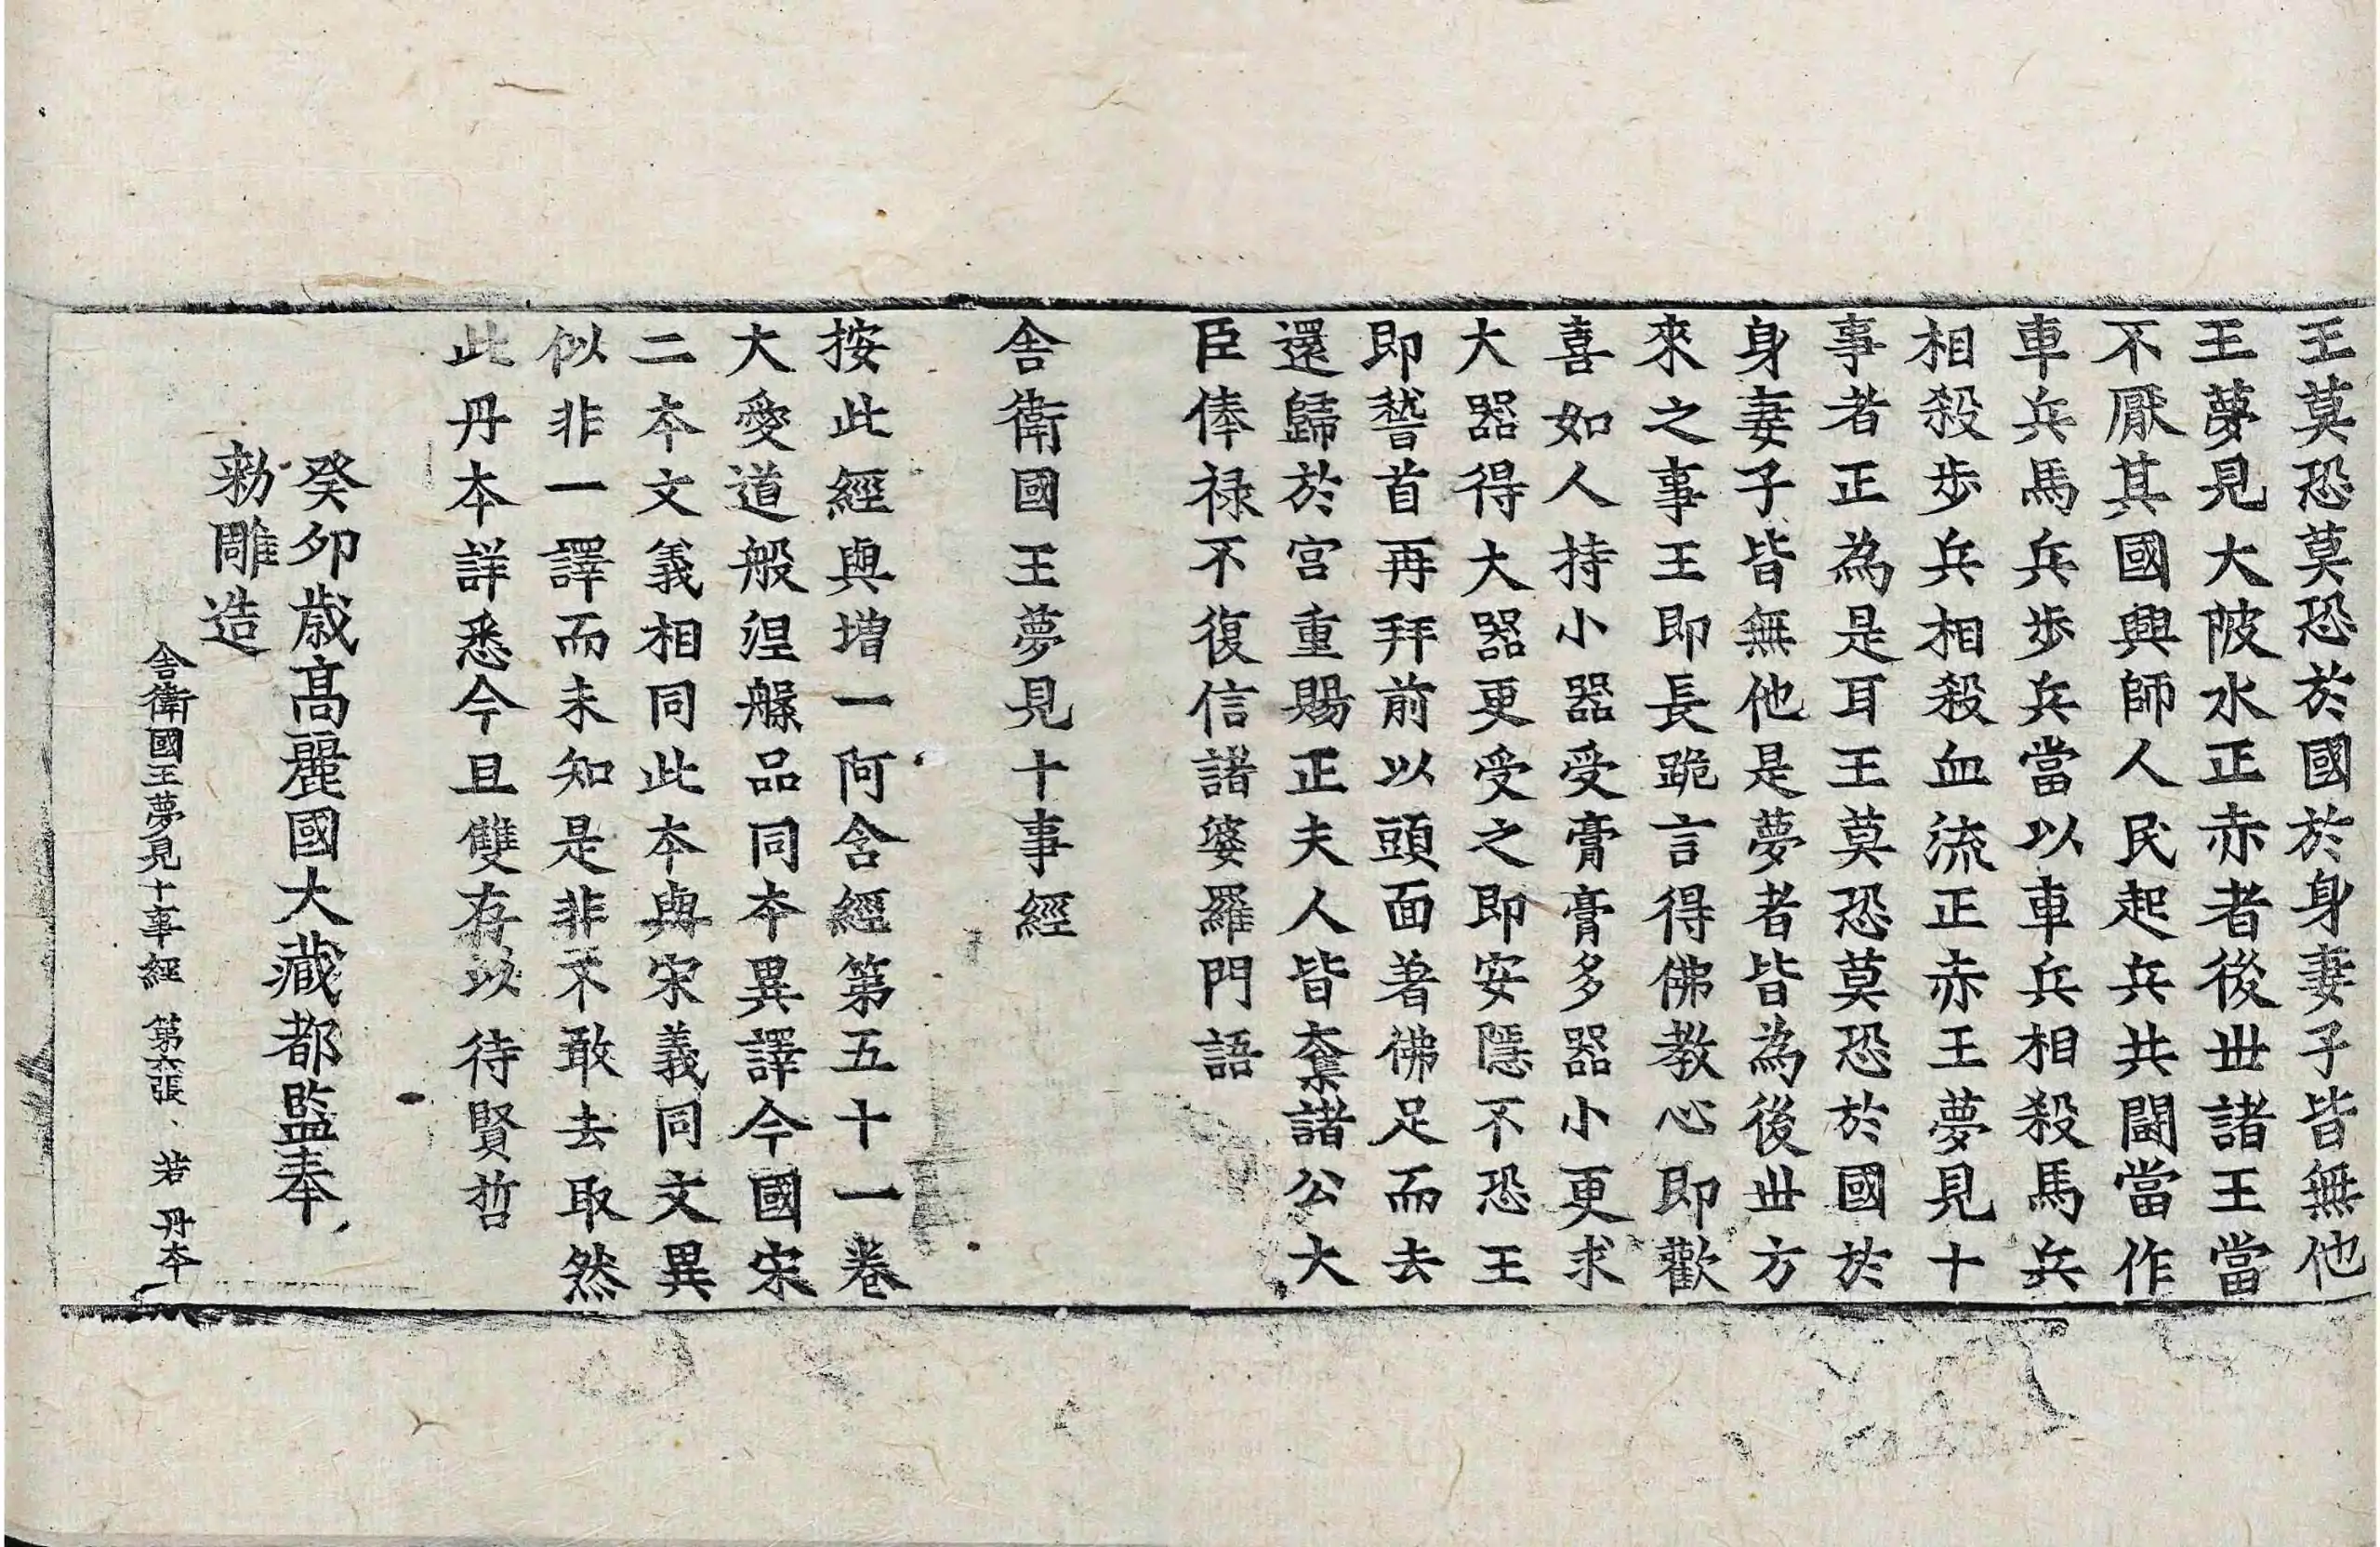 王莫恐莫恐於國於身妻子皆無他
王夢見大陂水正赤者後丗諸王當
不厭其國興師人民起兵共闘當作
車兵馬兵步兵當以車兵相殺馬兵
相殺步兵相殺血流正赤王夢見十
事者正為是耳王莫恐莫恐於國於
身妻子皆無他是夢者皆為後丗方
來之事王即長跪言得佛教心即歡
喜如人持小器受膏膏多器小更求
大器得大器更受之即安隱不恐王
即嵇首再拜前以頭面著佛足而去
還歸於宮重賜正夫人皆奪諸公大
臣俸禄不復信諸婆羅門語
舍衛國王夢見十事經
按此經與增一阿含經第五十一卷
大愛道般涅槃品同本異譯今國宋
二本文義相同此本與宋義同文異
似非一譯而未知是非不敢去取然
此丹本詳悉今且雙存以待賢哲
癸卯歲高麗國大藏都監奉
勑雕造
舍衛國王夢見十事經 第六張 若 丹本